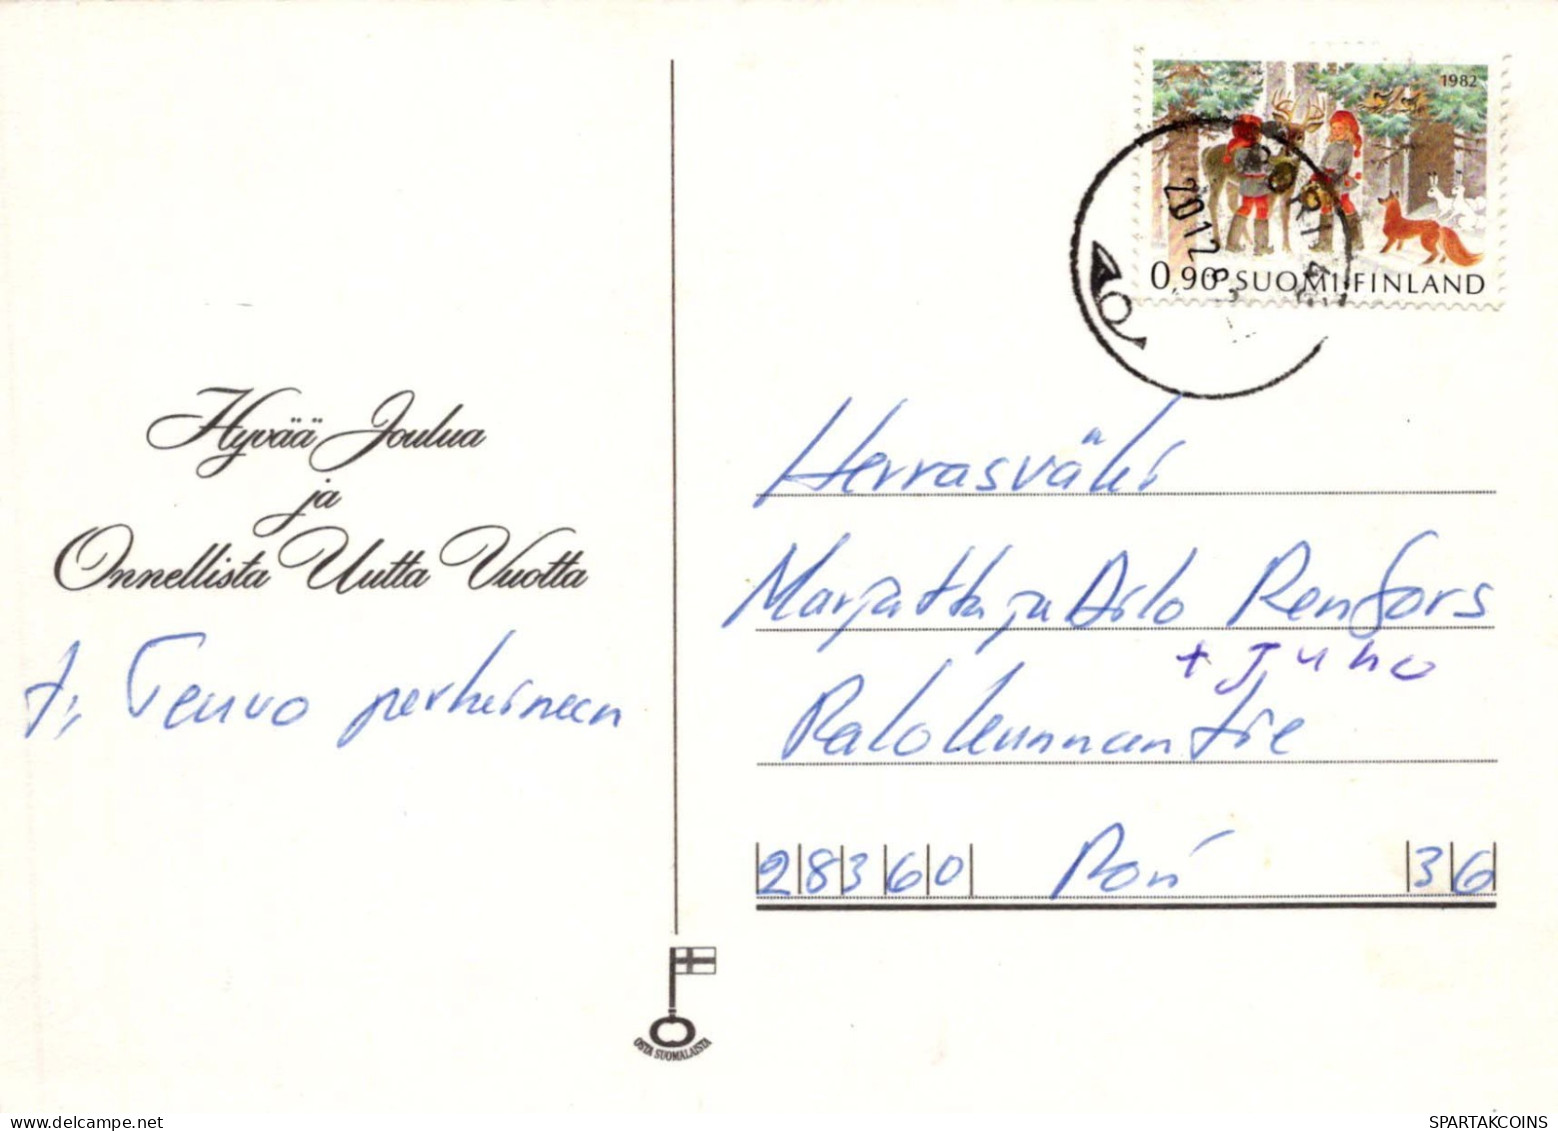 1982
0,90 SUOMI FINLAND
PORI
20.12.8
Hyvää Joulua
ja
Onnellista Uutta Vuotta
t; Teuvo perheineen
Herrasväki
Marjatta ja Arlo Renfors
+ Juho
Palokunnantie
28360 Pori 36
OSTA SUOMALAISTA
delcampe.net
SPARTAKCOINS